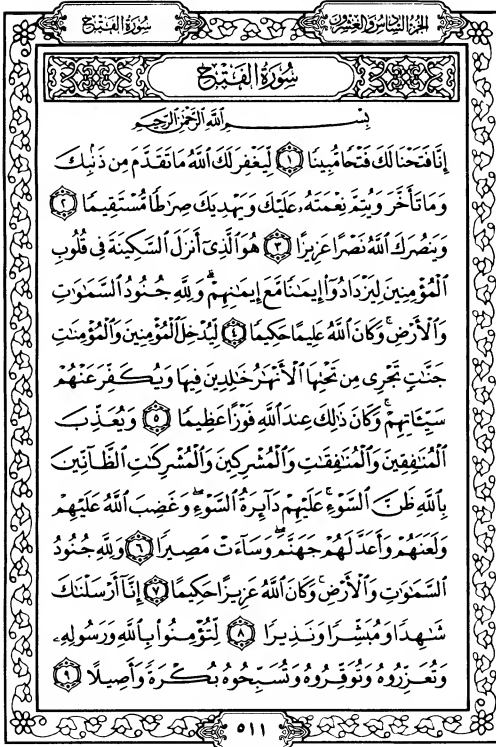 الجزء السادس والعشرون
سورة الفتح
سُورَةُ الفَتۡحِ
بِسۡمِ ٱللَّهِ ٱلرَّحۡمَٰنِ ٱلرَّحِيمِ
إِنَّا فَتَحۡنَا لَكَ فَتۡحٗا مُّبِينٗا ١ لِّيَغۡفِرَ لَكَ ٱللَّهُ مَا تَقَدَّمَ مِن ذَنۢبِكَ
وَمَا تَأَخَّرَ وَيُتِمَّ نِعۡمَتَهُۥ عَلَيۡكَ وَيَهۡدِيَكَ صِرَٰطٗا مُّسۡتَقِيمٗا ٢
وَيَنصُرَكَ ٱللَّهُ نَصۡرًا عَزِيزًا ٣ هُوَ ٱلَّذِيٓ أَنزَلَ ٱلسَّكِينَةَ فِي قُلُوبِ
ٱلۡمُؤۡمِنِينَ لِيَزۡدَادُوٓاْ إِيمَٰنٗا مَّعَ إِيمَٰنِهِمۡۗ وَلِلَّهِ جُنُودُ ٱلسَّمَٰوَٰتِ
وَٱلۡأَرۡضِۚ وَكَانَ ٱللَّهُ عَلِيمًا حَكِيمٗا ٤ لِّيُدۡخِلَ ٱلۡمُؤۡمِنِينَ وَٱلۡمُؤۡمِنَٰتِ
جَنَّٰتٖ تَجۡرِي مِن تَحۡتِهَا ٱلۡأَنۡهَٰرُ خَٰلِدِينَ فِيهَا وَيُكَفِّرَ عَنۡهُمۡ
سَيِّـَٔاتِهِمۡۚ وَكَانَ ذَٰلِكَ عِندَ ٱللَّهِ فَوۡزًا عَظِيمٗا ٥ وَيُعَذِّبَ
ٱلۡمُنَٰفِقِينَ وَٱلۡمُنَٰفِقَٰتِ وَٱلۡمُشۡرِكِينَ وَٱلۡمُشۡرِكَٰتِ ٱلظَّآنِّينَ
بِٱللَّهِ ظَنَّ ٱلسَّوۡءِۚ عَلَيۡهِمۡ دَآئِرَةُ ٱلسَّوۡءِۖ وَغَضِبَ ٱللَّهُ عَلَيۡهِمۡ
وَلَعَنَهُمۡ وَأَعَدَّ لَهُمۡ جَهَنَّمَۖ وَسَآءَتۡ مَصِيرٗا ٦ وَلِلَّهِ جُنُودُ
ٱلسَّمَٰوَٰتِ وَٱلۡأَرۡضِۚ وَكَانَ ٱللَّهُ عَزِيزًا حَكِيمًا ٧ إِنَّآ أَرۡسَلۡنَٰكَ
شَٰهِدٗا وَمُبَشِّرٗا وَنَذِيرٗا ٨ لِّتُؤۡمِنُواْ بِٱللَّهِ وَرَسُولِهِۦ
وَتُعَزِّرُوهُ وَتُوَقِّرُوهُۚ وَتُسَبِّحُوهُ بُكۡرَةٗ وَأَصِيلًا ٩
٥١١